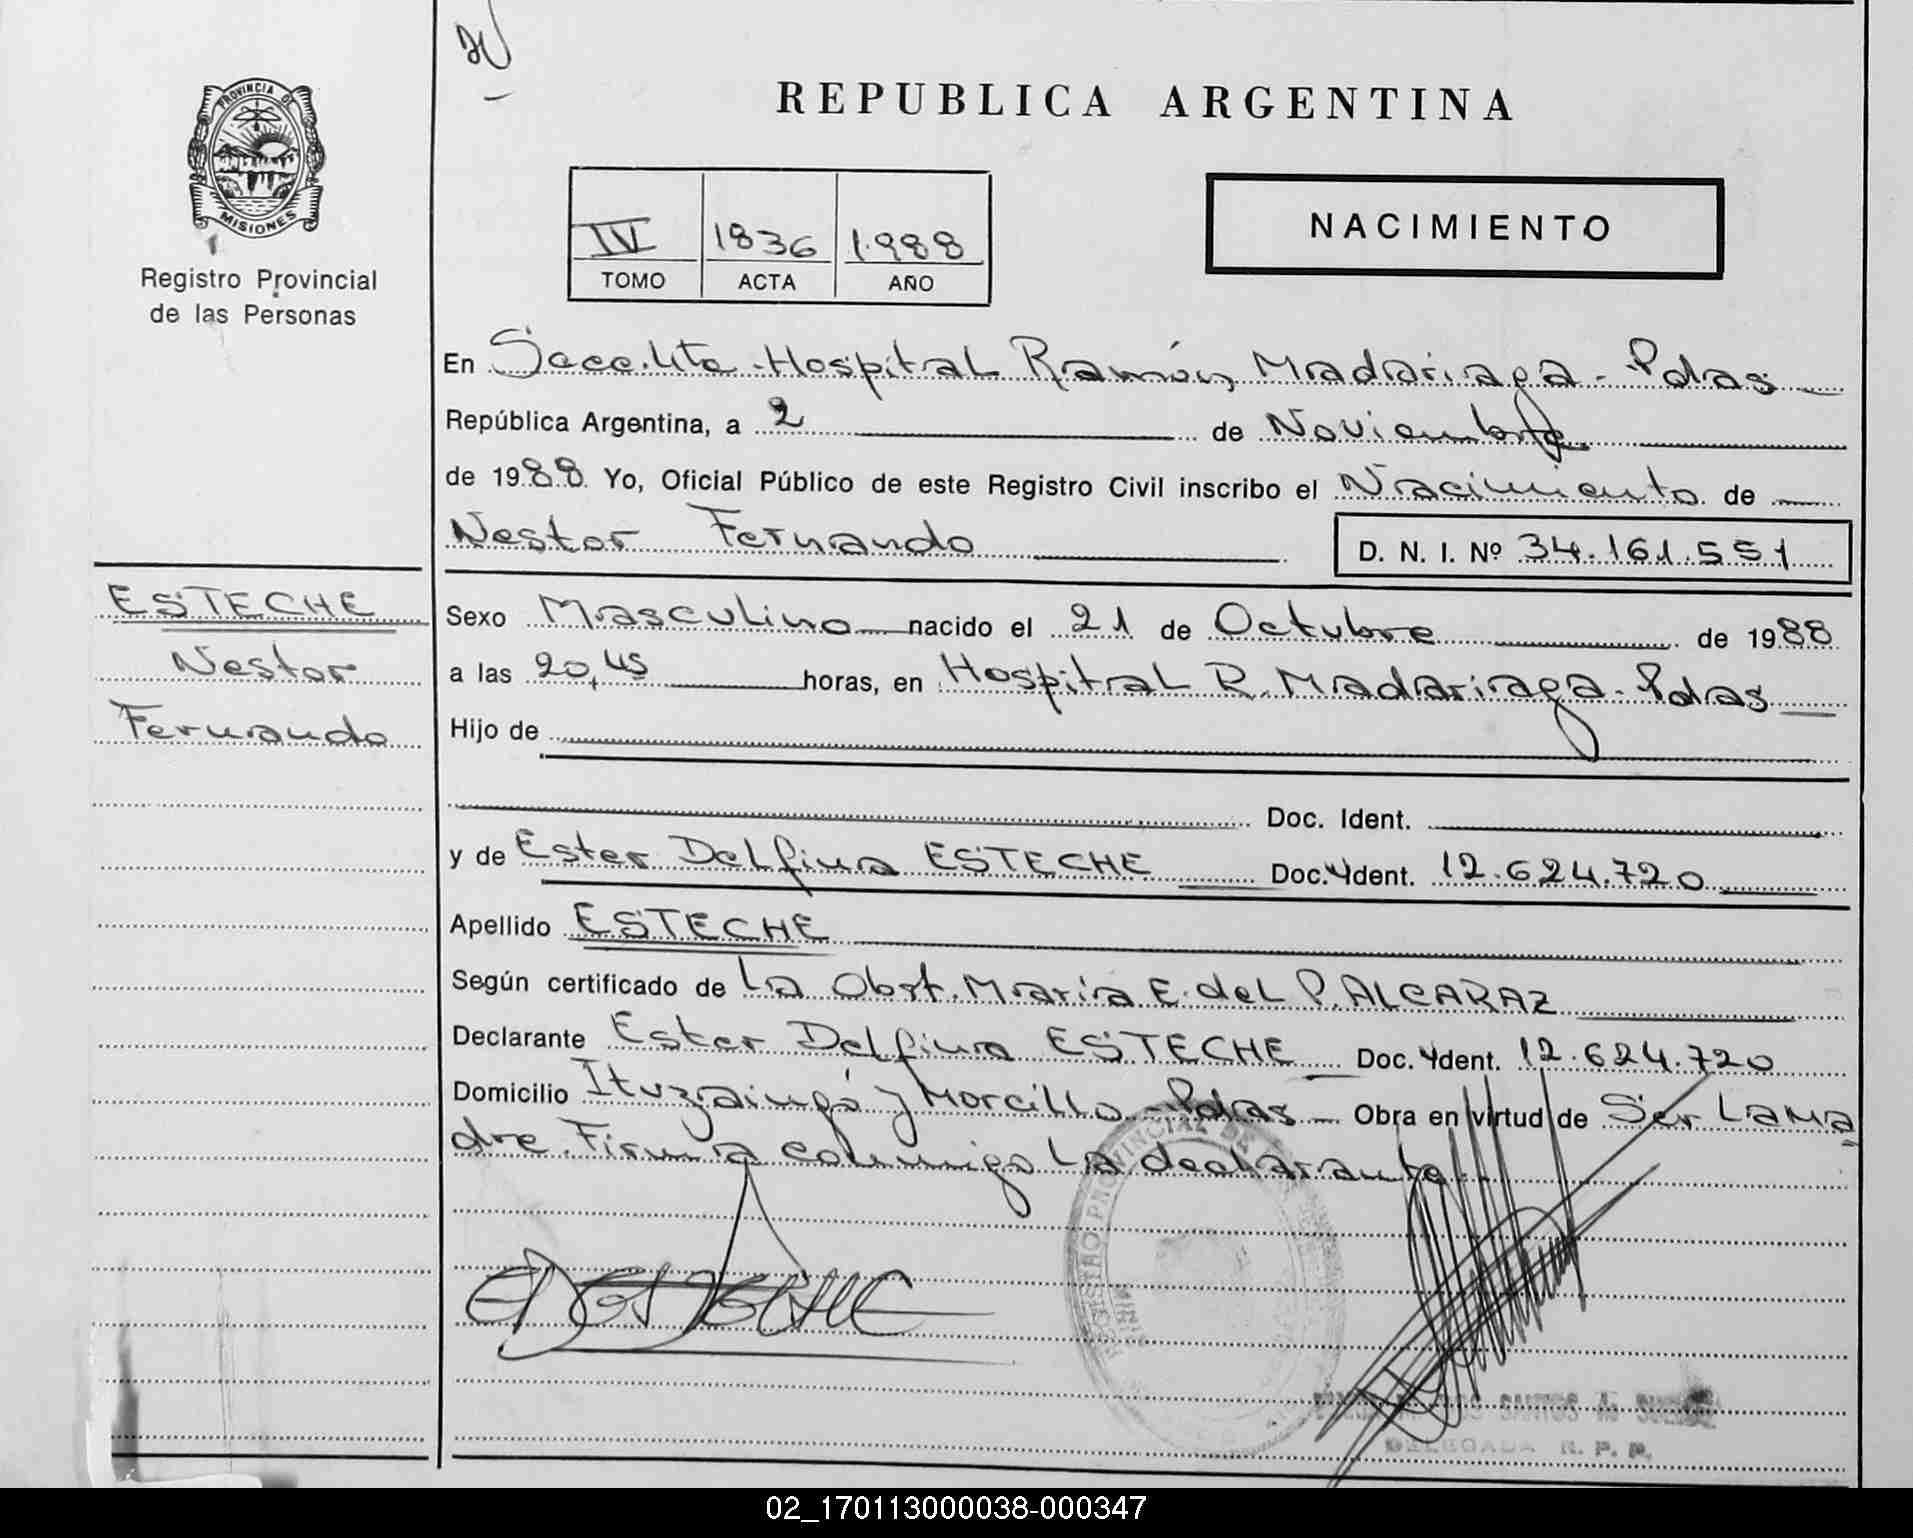 PROVINCIA DE
MISIONES
Registro Provincial
de las Personas
REPUBLICA ARGENTINA
IV 1836 1.988
TOMO ACTA AÑO
NACIMIENTO
En Secc. Hospital Ramón Madariaga - Pdas
República Argentina, a 2 de Noviembre
de 1988 Yo, Oficial Público de este Registro Civil inscribo el Nacimiento de
Nestor Fernando D. N. I. Nº 34.161.551
ESTECHE
Nestor
Fernando
Sexo Masculino nacido el 21 de Octubre de 1988
a las 20,45 horas, en Hospital R. Madariaga - Pdas
Hijo de
Doc. Ident.
y de Ester Delfina ESTECHE Doc. Ident. 12.624.720
Apellido ESTECHE
Según certificado de La Obst. María E. del P. ALCARAZ
Declarante Ester Delfina ESTECHE Doc. Ident. 12.624.720
Domicilio Ituzaingó y Morcillo - Pdas - Obra en virtud de Ser La Ma
dre. Firma conmigo La declarante.
REGISTRO PROVINCIAL DE
SANTOS
DELEGADA R. P. P.
02_170113000038-000347